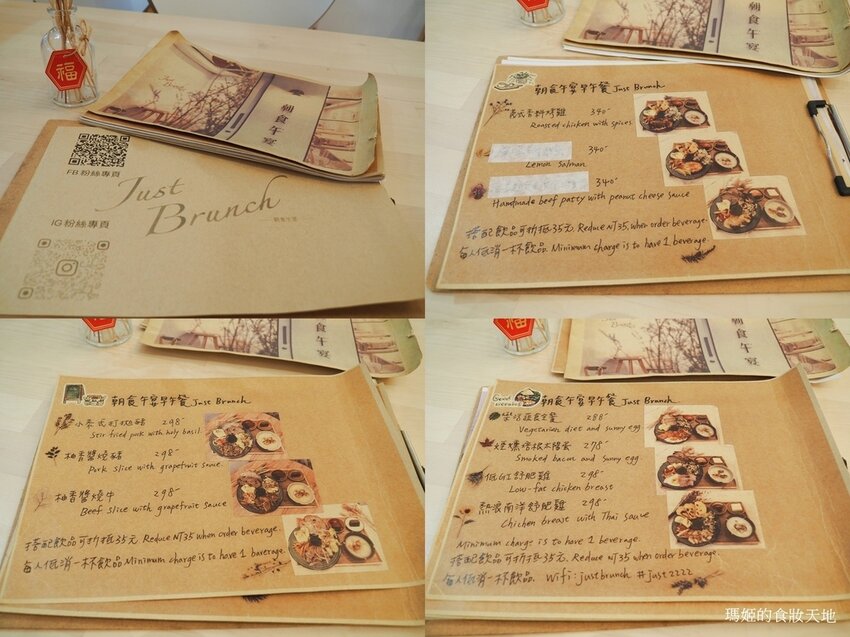 福
FB粉絲專頁
Just
Brunch
IG粉絲專頁
朝食午宴
朝食午宴
朝食午宴早午餐 Just Brunch
式香料烤雞 340-
Roasted chicken with spices
340-
Lemon Salmon
340-
Handmade beef patty with peanut cheese sauce
搭配飲品可折抵35元 Reduce NT35, when order beverage.
每人低消一杯飲品. Minimum charge is to have 1 beverage.
福
朝食午宴
朝食午宴早午餐 Just Brunch
小泰式打拋豬 298-
Stir fried pork with holy basil
柚香醬燒豬 298-
Pork slice with grapefruit sauce
柚香醬燒牛 298-
Beef slice with grapefruit sauce
搭配飲品可折抵35元 Reduce NT35 when order beverage.
每人低消一杯飲品 Minimum charge is to have 1 baverage.
福
朝食午宴
Good evening
朝食午宴早午餐 Just Brunch
樂活蔬食全餐 288-
Vegetarian diet and sunny egg
煙燻培根太陽蛋 278-
Smoked bacon and sunny egg
低GI舒肥雞 298-
Low-fat chicken breast
熱浪南洋舒肥雞 298-
Chicken breast with Thai sauce
Minimum charge is to have 1 beverage.
搭配飲品可折抵35元. Reduce NT35 when order beverage.
每人低消一杯飲品. Wifi: justbrunch #just2222
瑪姬的食妝天地